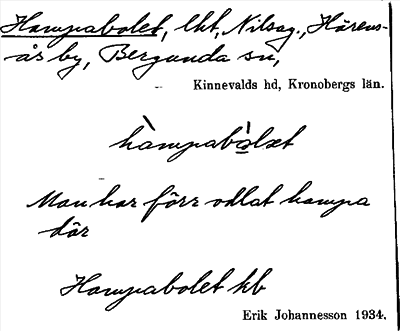 Hampabolet, lht, Nilsag., Härens-
ås by, Bergunda sn,
Kinnevalds hd, Kronobergs län.
hàmpabo̱lət
Man har förr odlat hampa
där
Hampabolet kb
Erik Johannesson 1934.